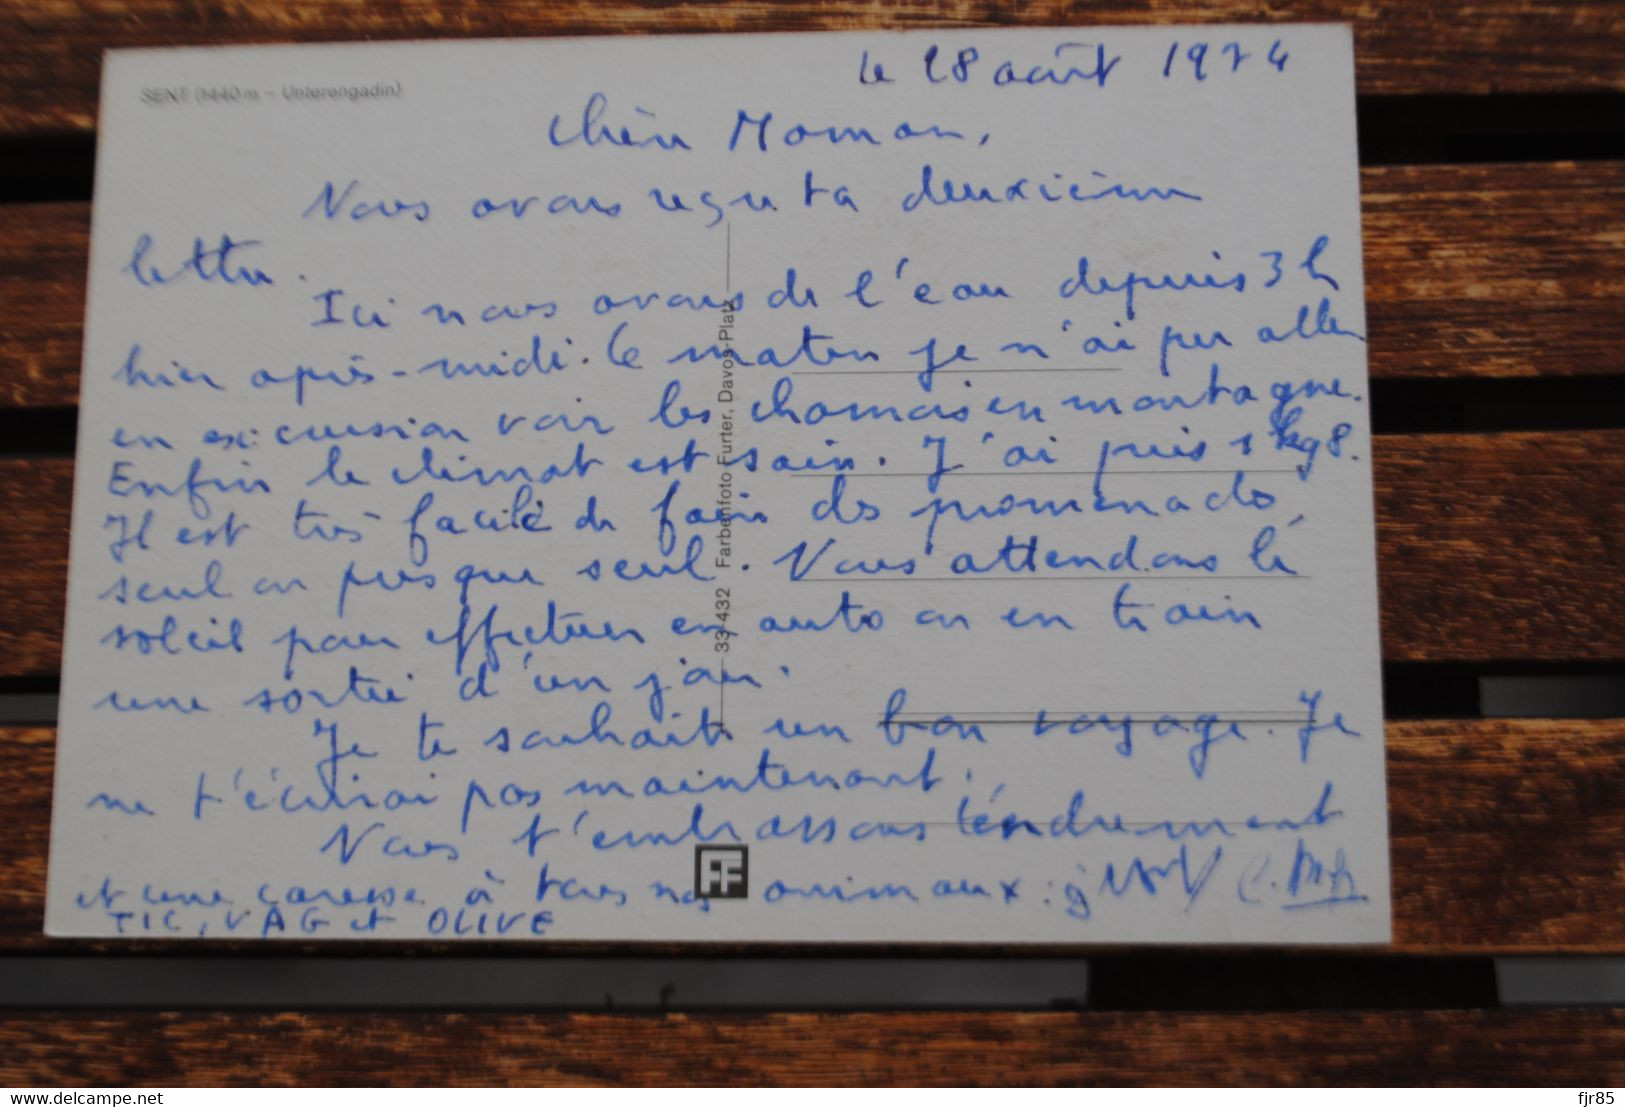 SENT (1440 m – Unterengadin)
le 28 août 1974
Chère Maman,
Nous avons reçu ta deuxième
lettre.
Ici nous avons de l'eau depuis 3 h
hier après-midi. Ce matin je n'ai pu aller
en excursion voir les chamois en montagne.
Enfin le climat est sain. J'ai pris 1 kg 8.
Il est très facile de faire des promenades
seul ou presque seul. Nous attendons le
soleil pour effectuer en auto ou en train
une sortie d'un jour.
Je te souhaite un bon voyage. Je
ne t'écrirai pas maintenant.
Nous t'embrassons tendrement
et une caresse à tous nos animaux :
TIC, VAG et OLIVE
33 432 Farbenfoto Furter, Davos-Platz
FF
www.delcampe.net
fjr85